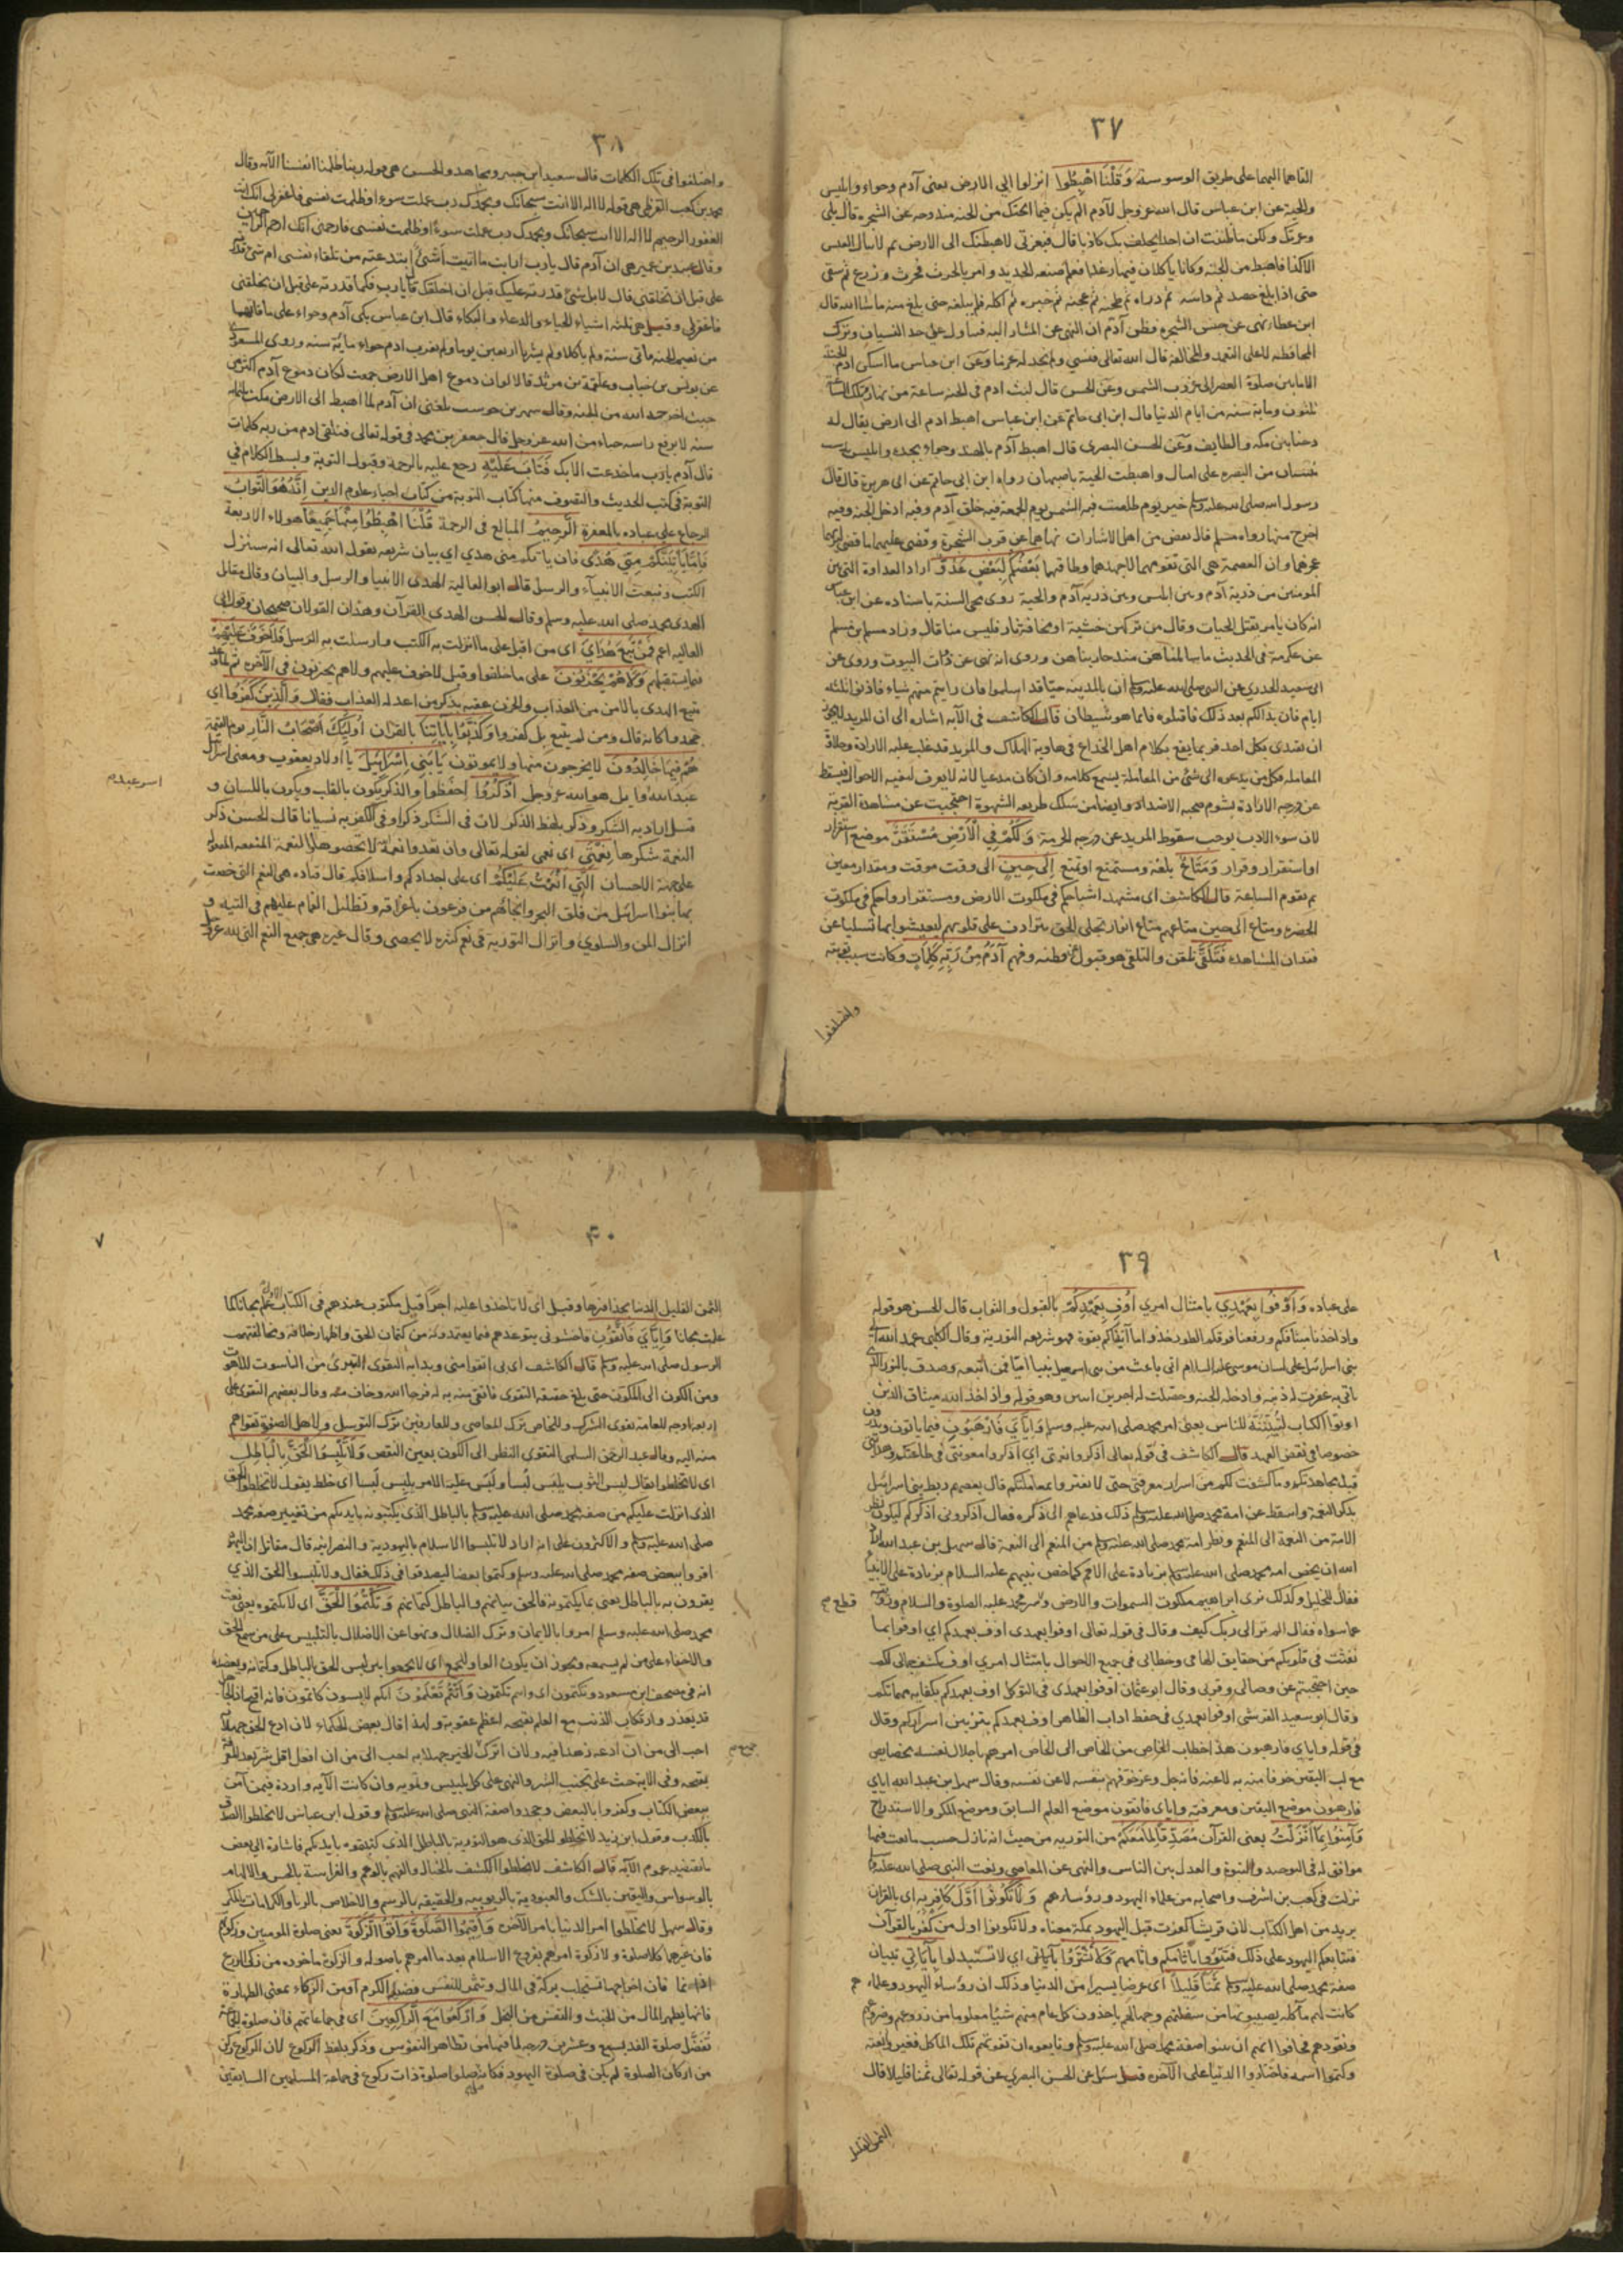 ٣٧
القاهما اليهما على طريق الوسوسة وَقُلْنَا اهْبِطُوا انزلوا الى الارض يعنى آدم وحواء وابليس
والحية عن ابن عباس قال الله عز وجل لآدم الم يكن فيما ابحتك من الجنة مندوحه عن الشجره قال بلى
وعزتك ولكن ما ظننت ان احدا يحلف بك كاذبا قال فبعزتى لاهبطنك الى الارض ثم لا تنال العيش
الا كدا فاهبط من الجنة وكانا ياكلان فيها رغدا فعلم صنعه الحديد وامر بالحرث فحرث وزرع ثم سقى
حتى اذا بلغ حصد ثم داسه ثم ذراه ثم طحنه ثم عجنه ثم خبزه ثم اكله فلم يبلغه حتى بلغ منه ما شا الله قال
ابن عطا نهى عن جنس الشجره فظن آدم ان النهى عن المشار اليه فتناول على حد النسيان وترك
المحافظة لا على التعمد والمخالفة قال الله تعالى فنسي ولم نجد له عزما وعن ابن عباس ما اسكن ادم الجنة
الا ما بين صلوة العصر الى غروب الشمس وعن الحسن قال لبث ادم فى الجنة ساعة من نهار تلك الساعة
ثلثون ومايه سنه من ايام الدنيا قال ابن ابى حاتم عن ابن عباس اهبط ادم الى ارض يقال له
دحنا بين مكه والطايف وعن الحسن البصرى قال اهبط آدم بالهند وحواء بجده وابليس
من البصره على اميال واهبطت الحية باصبهان رواه ابن ابى حاتم عن ابى هريرة قال قال
رسول الله صلى الله عليه وسلم خير يوم طلعت فيه الشمس يوم الجمعة فيه خلق آدم وفيه ادخل الجنة وفيه
اخرج منها رواه مسلم قال بعض من اهل الاشارات نهاهما عن قرب الشجرة وقضى عليهما ما قضى ليريهما
عجزهما وان العصمة هى التى تقومهما لا جهدهما وطاقتهما بَعْضُكُمْ لِبَعْضٍ عَدُوٌّ اراد العداوة التى بين
المومنين من ذرية آدم وبين ابليس وبين ذريه آدم والحية روى محى السنة باسناده عن ابن عباس
انه كان يامر بقتل الحيات وقال من تركهن خشية او مخافة ثار فليس منا قال وزاد مسلم بن مسلم
عن عكرمة فى الحديث ما سالمناهن منذ حاربناهن وروى انه نهى عن ذوات البيوت وروى عن
ابى سعيد الخدرى عن النبى صلى الله عليه وسلم ان بالمدينه جنا قد اسلموا فان رايتم منهم شياء فاذنوا ثلثه
ايام فان بدا لكم بعد ذلك فاقتلوه فانما هو شيطان قال الكاشف فى الآية اشاره الى ان المريد لا يجوز
ان يقتدى بكل احد فربما يقع بكلام اهل الخداع فى هاوية الهلاك والمريد قد غلب عليه الارادة وحلاوة
المعامله فكل من يدعوه الى شئ من المعاملة يسمع كلامه وان كان مدعيا لانه لا يعرف الاحوال فيسقط
عن درجه الارادة بشوم صحبة الاضداد وايضا من سلك طريقه الشهوة احتجبت عن مشاهدة القربة
لان سوء الادب يوجب سقوط المريد عن درجه الحرمة وَلَكُمْ فِي الْأَرْضِ مُسْتَقَرٌّ موضع استقرار
او استقرار وقرار وَمَتَاعٌ بلغة ومستمتع او تمتع إِلَى حِينٍ الى وقت موقت ومقدار معين
ثم تقوم الساعة قال الكاشف اى مشهد اشباحكم فى ملكوت الارض ومستقر ارواحكم فى ملكوت
الحضره ومتاع الى حين متاعهم متاع انوار تجلى الحق يترادف على قلوبهم ليعيشوا بها تسليا عن
فقدان المشاهده فَتَلَقَّى تلقن والتلقى هو قبول عن فطنه وفهم آدَمُ مِنْ رَبِّهِ كَلِمَاتٍ وكانت سبب توبته
واختلفوا
٣٨
واختلفوا فى تلك الكلمات قال سعيد ابن جبير ومجاهد والحسن هى قوله ربنا ظلمنا انفسنا الآية وقال
محمد بن كعب القرظى هى قوله لا اله الا انت سبحانك وبحمدك رب عملت سوء او ظلمت نفسى فاغفر لى انك انت
الغفور الرحيم لا اله الا انت سبحانك وبحمدك رب عملت سوءا وظلمت نفسى فارحمنى انك ارحم الراحمين
وقال عبيد بن عمير هى ان آدم قال يا رب ارايت ما اتيت أشئ ابتدعته من تلقاء نفسى ام شئ قدرته
على قبل ان تخلقنى قال لا بل شئ قدرته عليك قبل ان اخلقك قال يا رب فكما قدرته على قبل ان تخلقنى
فاغفر لى وقيل هى ثلثه اشياء الحياء والدعاء والبكاء قال ابن عباس بكى آدم وحواء على ما فاتهما
من نعيم الجنه مأتى سنة ولم ياكلا ولم يشربا اربعين يوما ولم يقرب ادم حواء مائة سنه وروى المسعودى
عن يونس بن خباب وعلقمة بن مرثد قالا لو ان دموع اهل الارض جمعت لكان دموع آدم اكثر
حيث اخرجه الله من الجنة وقال شهر بن حوشب بلغنى ان آدم لما اهبط الى الارض مكث ثلثمايه
سنه لا يرفع راسه حياء من الله عز وجل قال جعفر بن محمد فى قوله تعالى فتلقى ادم من ربه كلمات
قال آدم يا رب ما خدعت الا بك فَتَابَ عَلَيْهِ رجع عليه بالرحمة وقبول التوبة وبسط الكلام فى
التوبة فى كتب الحديث والتصوف منها كتاب التوبة من كتاب احياء علوم الدين إِنَّهُ هُوَ التَّوَّابُ
الرجاع على عباده بالمغفرة الرَّحِيمُ المبالغ فى الرحمة قُلْنَا اهْبِطُوا مِنْهَا جَمِيعًا هولاء الاربعة
فَإِمَّا يَأْتِيَنَّكُمْ مِنِّي هُدًى فان ياتكم منى هدى اى بيان شريعه يقول الله تعالى انه سننزل
الكتب ونبعث الانبياء والرسل قال ابو العالية الهدى الانبيا والرسل والبيان وقال مقاتل
الهدى محمد صلى الله عليه وسلم وقال الحسن الهدى القرآن وهذان القولان صحيحان وقول ابى
العاليه اعم فَمَنْ تَبِعَ هُدَايَ اى من اقبل على ما انزلت به الكتب وارسلت به الرسل فَلَا خَوْفٌ عَلَيْهِمْ
فيما يستقبلهم وَلَا هُمْ يَحْزَنُونَ على ما خلفوا وقيل لا خوف عليهم ولا هم يحزنون فى الآخره ثم لما وعد
متبع الهدى بالامن من العذاب والحزن عقبه بذكر من اعد له العذاب فقال وَالَّذِينَ كَفَرُوا اى
جحدوا كانه قال ومن لم يتبع بل كفروا وَكَذَّبُوا بِآيَاتِنَا بالقران أُولَئِكَ أَصْحَابُ النَّارِ يوم القيمة
هُمْ فِيهَا خَالِدُونَ لا يخرجون منها ولا يموتون يَا بَنِي إِسْرَائِيلَ يا اولاد يعقوب ومعنى اسرائيل
عبد الله وايل هو الله عز وجل اذْكُرُوا احفظوا والذكر يكون بالقلب ويكون باللسان و
قيل اراد به الشكر وذكر بلفظ الذكر لان فى الشكر ذكرا وفى الكفر به نسيانا قال الحسن ذكر
النعمة شكرها نِعْمَتِيَ اى نعمى لقوله تعالى وان تعدوا نعمة لا تحصوها والنعمة المنفعه المفعوله
على جهة الاحسان الَّتِي أَنْعَمْتُ عَلَيْكُمْ اى على اجدادكم واسلافكم قال قتاده هى النعم التى خصت
بها بنوا اسرائيل من فلق البحر وانجائهم من فرعون باغراقه وتظليل الغمام عليهم فى التيه و
انزال المن والسلوى وانزال التورية فى نعم كثيره لا يحصى وقال غيره هى جميع النعم التى لله عز وجل
٣٩
على عباده وَأَوْفُوا بِعَهْدِي بامتثال امرى أُوفِ بِعَهْدِكُمْ بالقبول والثواب قال الحسن هو قوله
واذ اخذنا ميثاقكم ورفعنا فوقكم الطور خذوا ما آتيناكم بقوة فهو شريعه التورية وقال الكلبى عهد الله الى
بنى اسرائيل على لسان موسى عليه السلام انى باعث من بنى اسمعيل نبيا اميا فمن اتبعه وصدق بالنور الذى
ياتى به غفرت له ذنبه وادخله الجنه وجعلت له اجرين اثنين وهو قوله واذ اخذ الله ميثاق الذين
اوتوا الكتاب لتبيننه للناس يعنى امر محمد صلى الله عليه وسلم وَإِيَّايَ فَارْهَبُونِ فيما ياتون ويذرون
خصوصا فى نقض العهد قال الكاشف فى قوله تعالى اذكروا نعمتى اى اذكروا معونتى فى طاعتكم
قبل مجاهدتكم وما كشفت لكم من اسرار معرفتى حتى لا تغتروا بمعاملتكم قال بعضهم ربط بنى اسرائيل
بذكر النعمة واسقط عن امة محمد صلى الله عليه وسلم ذلك فدعاهم الى ذكره فقال اذكرونى اذكركم ليكون نظر
الامة من النعمة الى المنعم ونظر امة محمد صلى الله عليه وسلم من المنعم الى النعمة قال سهل بن عبد الله اراد
الله ان يخص امه محمد صلى الله عليه وسلم بزيادة على الامم كما خص نبيهم عليه السلام بزيادة على الانبياء
فقال للخليل وكذلك نرى ابراهيم ملكوت السموات والارض محمد عليه الصلوة والسلام
عما سواه فقال الم تر الى ربك كيف وقال فى قوله تعالى اوفوا بعهدى اوف بعهدكم اى اوفوا بما
نفثت فى قلوبكم من حقايق الهامى وخطابى فى جميع الاحوال بامتثال امرى اوف بكشف جمالى لكم
حين احتجبتم عن وصالى وقربى وقال ابو عثمان اوفوا بعهدى فى التوكل اوف بعهدكم بكفايه مهماتكم
وقال ابو سعيد القرشى اوفوا بعهدى فى حفظ اداب الظاهر اوف بعهدكم بتزيين اسراركم وقال
فى قوله واياى فارهبون هذا خطاب الخاص من الخاص الى الخاص امرهم باجلال نفسه بخصايص
فارهبون موضع اليقين ومعرفته واياى فاتقون موضع العلم السابق وموضع المكر والاستدراج
وَآمِنُوا بِمَا أَنْزَلْتُ يعنى القرآن مُصَدِّقًا لِمَا مَعَكُمْ من التوريه من حيث انه نازل حسب ما نعت فيها
موافق له فى التوحيد والنبوة والعدل بين الناس والنهى عن المعاصى ونعت النبى صلى الله عليه وسلم
نزلت فى كعب بن اشرف واصحابه من علماء اليهود ورؤسائهم وَلَا تَكُونُوا أَوَّلَ كَافِرٍ بِهِ اى بالقران
يريد من اهل الكتاب لان قريشا كفرت قبل اليهود بمكة معناه ولا تكونوا اول من كفر بالقرآن
فتتابعكم اليهود على ذلك فتبوؤا بآثامكم واثامهم وَلَا تَشْتَرُوا بِآيَاتِي اى لا تستبدلوا بآياتى تبيان
صفة محمد صلى الله عليه وسلم ثَمَنًا قَلِيلًا اى عرضا يسيرا من الدنيا وذلك ان رؤساء اليهود وعلماءهم
كانت لهم مآكله يصيبونها من سفلتهم وجهالهم ياخذون كل عام منهم شيئا معلوما من زروعهم وضروعهم
ونقودهم فخافوا انهم ان بينوا صفة محمد صلى الله عليه وسلم وتابعوه ان تفوتهم تلك المآكل فغيروا نعته
وكتموا اسمه فاختاروا الدنيا على الآخره قيل سئل عن الحسن البصرى عن قوله تعالى ثمنا قليلا قال
الثمن القليل
٧
٤٠
الثمن القليل الدنيا بحذافيرها وقيل اى لا تاخذوا عليه اجرا قيل مكتوب عندهم فى الكتاب علم مجانا كما
علمت مجانا وَإِيَّايَ فَاتَّقُونِ فاخشونى يتوعدهم فيما يعتمدونه من كتمان الحق واظهار خلافه ومخالفتهم
الرسول صلى الله عليه وسلم قال الكاشف اى بى اتقوا منى وبداية التقوى التبرى من الناسوت للاهوت
ومن الكون الى المكون حتى بلغ حقيقه التقوى فاتقى منه به له فرجا الله وخاف منه وقال بعضهم التقوى على
اربعة اوجه للعامة تقوى الشرك وللخاص ترك المعاصى وللعارفين ترك التوسل ولاهل الصفوة تقواهم
منه اليه وقال عبد الرحمن السلمى التقوى النظر الى الكون بعين النقص وَلَا تَلْبِسُوا الْحَقَّ بِالْبَاطِلِ
اى لا تخلطوا يقال لبس الثوب يلبس لُبسا ولبس عليه الامر يلبِس لَبسا اى خلط يقول لا تخلطوا الحق
الذى انزلت عليكم من صفة محمد صلى الله عليه وسلم بالباطل الذى يكتبونه بايديكم من تغيير صفة محمد
صلى الله عليه وسلم والاكثرون على انه اراد لا تلبسوا الاسلام باليهودية والنصرانية قال مقاتل ان اليهود
اقروا ببعض صفة محمد صلى الله عليه وسلم وكتموا بعضا ليصدقوا فى ذلك فقال ولا تلبسوا الحق الذى
يقرون به بالباطل يعنى بما يكتمونه فالحق بيانهم والباطل كتمانهم وَتَكْتُمُوا الْحَقَّ اى لا تكتموه يعنى نعت
محمد صلى الله عليه وسلم امروا بالايمان وترك الضلال ونهوا عن الاضلال بالتلبيس على من سمع الحق
والاخفاء على من لم يسمعه ويجوز ان يكون الواو للجمع اى لا تجمعوا بين لبس الحق بالباطل وكتمانه ويعضده
انه فى مصحف ابن مسعود وتكتمون اى وانتم تكتمون وَأَنْتُمْ تَعْلَمُونَ انكم لابسون كاتمون فانه اقبح اذ الجاهل
قد يعذر وارتكاب الذنب مع العلم بقبحه اعظم عقوبة ولهذا قال بعض الحكماء لان ادع الحق جهلا به
احب الى من ان ادعه زهدا فيه ولان اترك الخير جهلا به احب الى من ان افعل اقل شر بعد المعرفة
بقبحه وفى الاية حث على تجنب الشر والنهى على كل تلبيس وتمويه وان كانت الآيه واردة فيمن آمن
ببعض الكتاب وكفروا بالبعض وجحدوا صفة النبى صلى الله عليه وسلم وقول ابن عباس لا تخلطوا الصدق
بالكذب وقول ابن زيد لا تخلطوا الحق الذى هو التورية بالباطل الذى كتبتموه بايديكم فاشارة الى بعض
ما يقتضيه عموم الآية قال الكاشف لا تخلطوا الكشف بالخيال والفهم بالوهم والفراسة بالحس والالهام
بالوسواس واليقين بالشك والعبودية بالربوبيه والحقيقه بالرسم والاخلاص بالريا والكرامات بالمكر
وقال سهل لا تخلطوا امر الدنيا بامر الآخره وَأَقِيمُوا الصَّلَوةَ وَآتُوا الزَّكَوةَ يعنى صلوة المومنين وزكوتهم
فان غيرهما كلا صلوة ولا زكوة امرهم بفروع الاسلام بعد ما امرهم باصوله والزكوة ماخوذه من زكى الزرع
اذا نما فان اخراجها تستجلب بركة فى المال وتثمر للنفس فضيلة الكرم او من الزكاء بمعنى الطهارة
فانها يطهر المال من الخبث والنفس من البخل وَارْكَعُوا مَعَ الرَّاكِعِينَ اى فى جماعاتهم فان صلوة الجماعة
تفضل صلوة الفذ بسبع وعشرين درجه لما فيها من تظاهر النفوس وذكر بلفظ الركوع لان الركوع ركن
من اركان الصلوة لم يكن فى صلوة اليهود فكانه صلوا صلوة ذات ركوع فى جماعة المسلمين السابقين